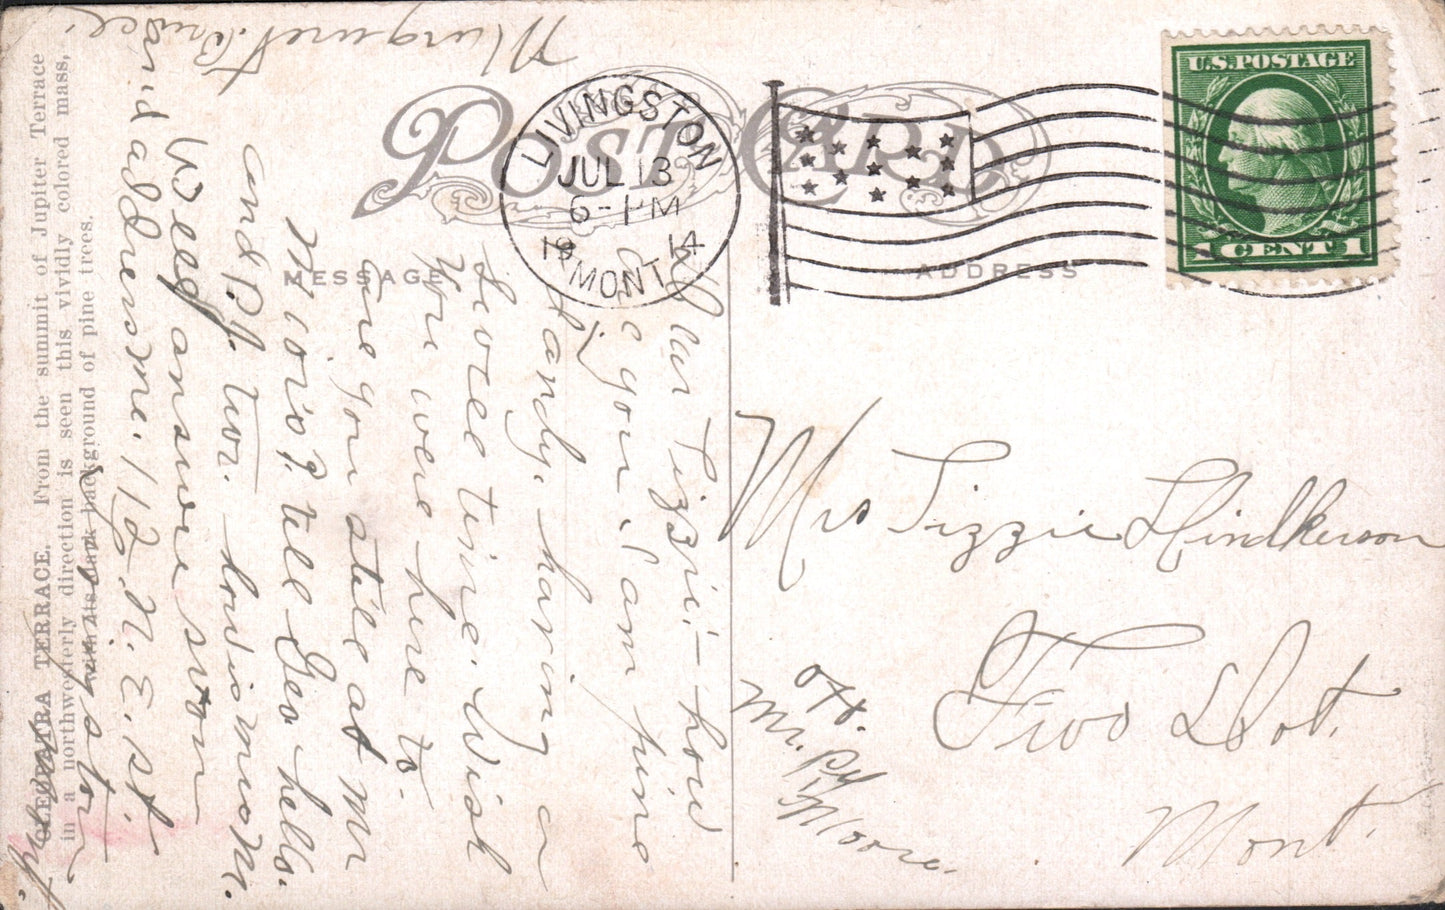 POST CARD
LIVINGSTON
JUL 13
6-PM
1914
MONT.
U.S. POSTAGE
1 CENT 1
MESSAGE
ADDRESS
CLEOPATRA TERRACE. From the summit of Jupiter Terrace
in a northwesterly direction is seen this vividly colored mass,
with its dark background of pine trees.
Dear Lizzie:- how
are you. I am fine
dandy. having a
swell time. Wish
you were here to.
are you still at Mr
Moro's? tell Geo hello.
and P.J. two.
Well answer soon
and address me. 112 N. E. St.
Margaret Bruce
Mrs Lizzie Hindkerson
Two Dot.
Mont.
Mr. P.J.
Moore.